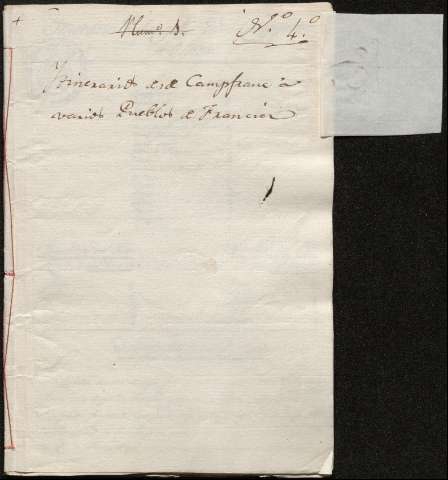 +
Num.º 3. N.º 4.º
Ytinerarios desde Campfranc à
varios Pueblos de Francia